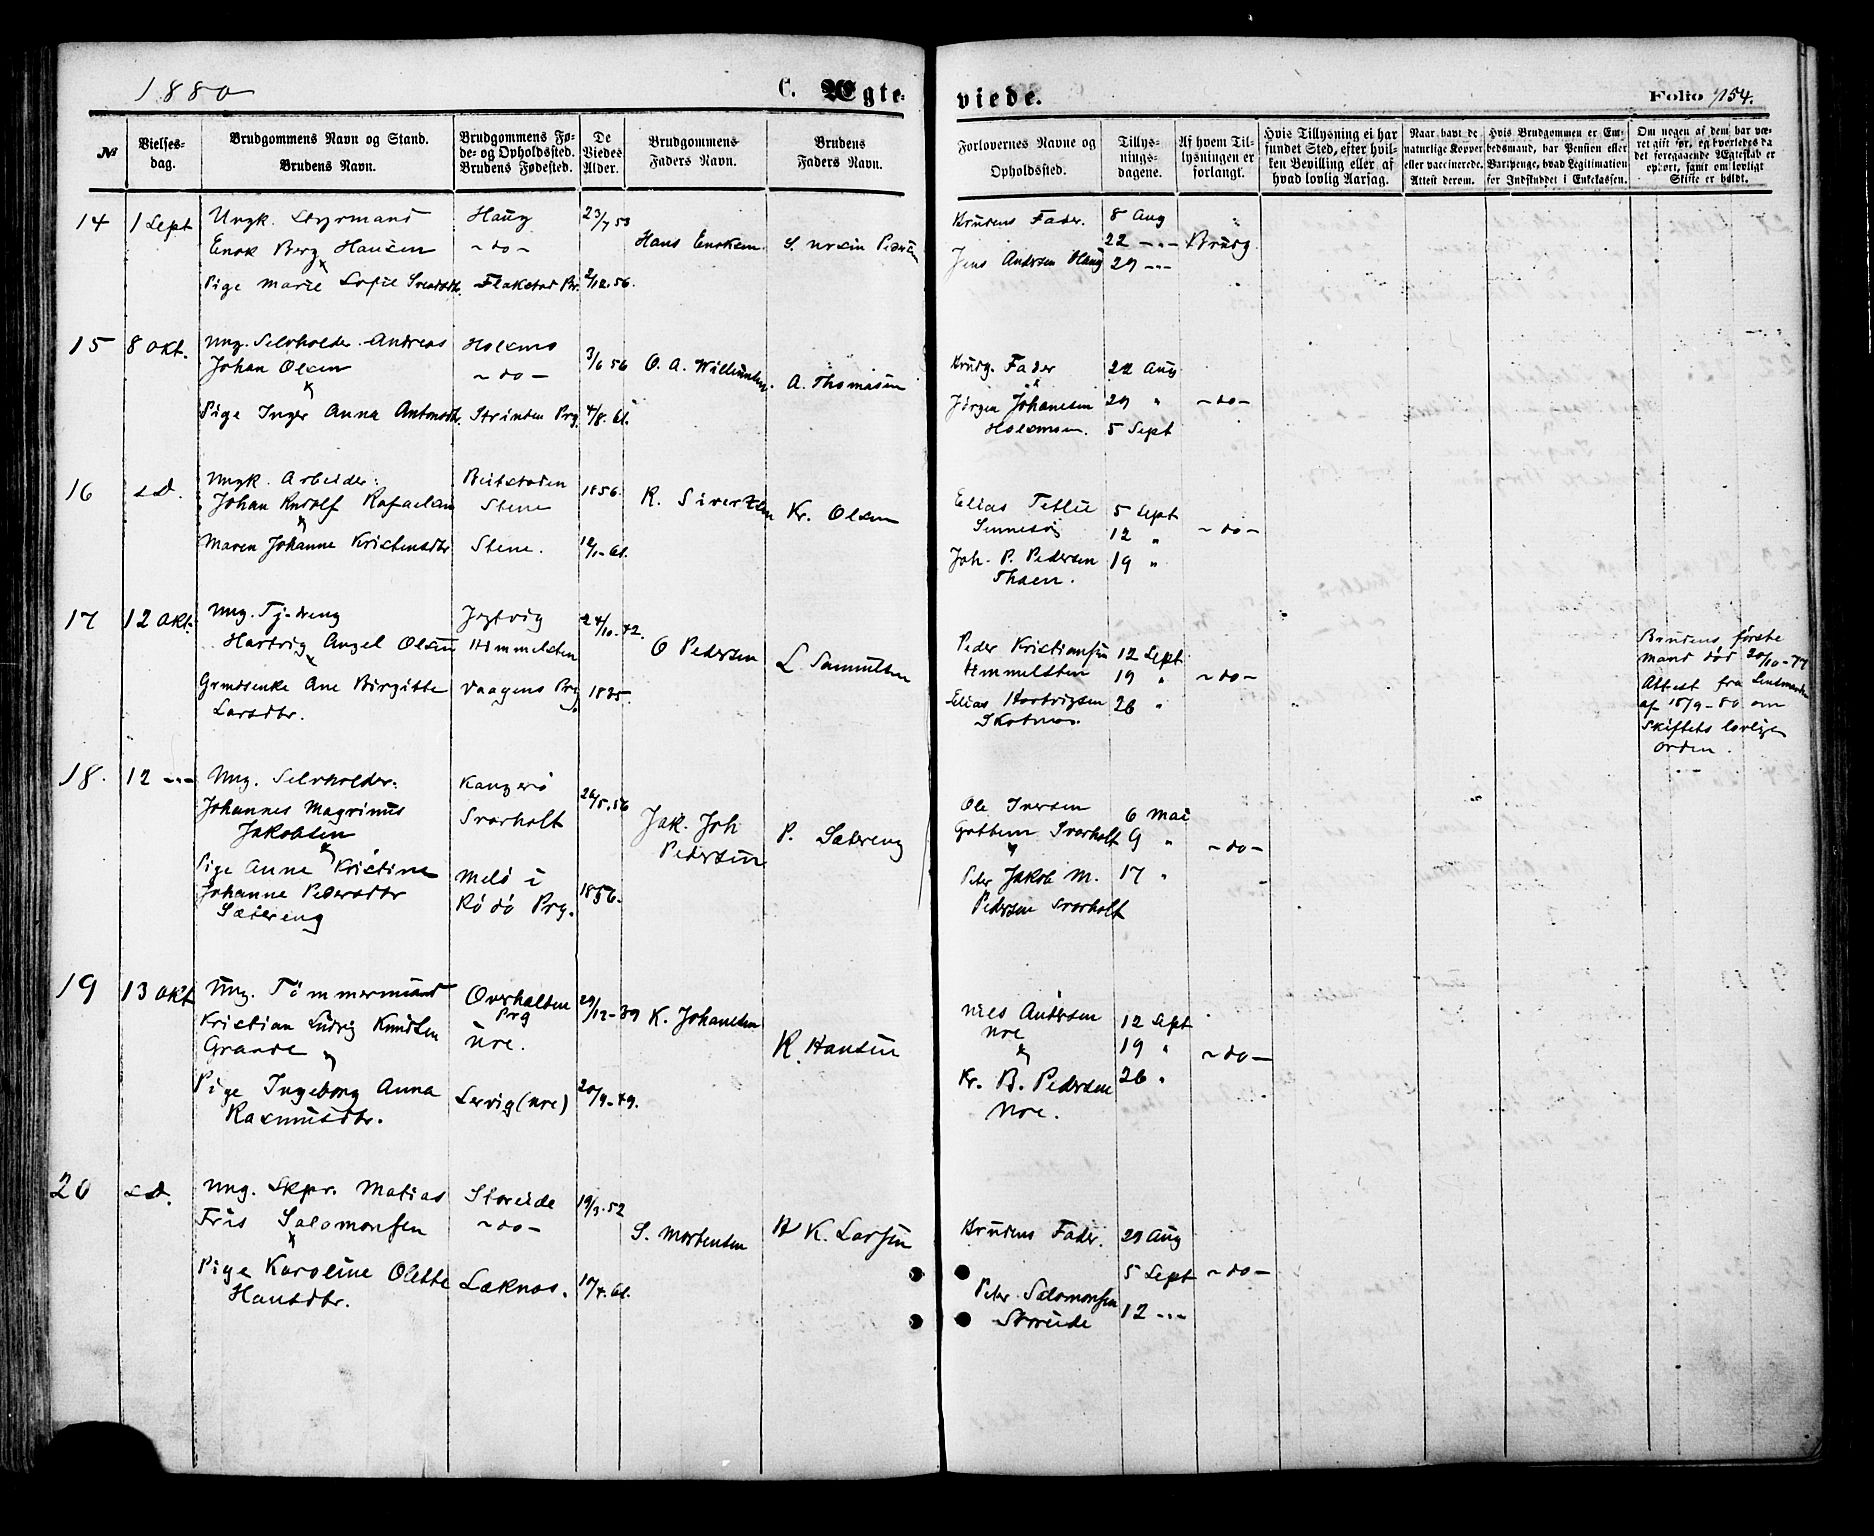 1880
C. Ægte-
viede.
Folio 154.
№
Vielses-
dag.
Brudgommens Navn og Stand.
Brudens Navn.
Brudgommens Fø-
de- og Opholdssted.
Brudens Fødested.
De
Viedes
Alder.
Brudgommens
Faders Navn.
Brudens
Faders Navn.
Forlovernes Navne og
Opholdssted.
Tillys-
nings-
dagene.
Af hvem Til-
lysningen er
forlangt.
Hvis Tillysning ei har
fundet Sted, efter hvil-
ken Bevilling eller af
hvad lovlig Aarsag.
Naar havt de
naturlige Kopper
eller vaccinerede.
Attest derom.
Hvis Brudgommen er Em-
bedsmand, har Pension eller
Vartpenge, hvad Legitimation
for Indskuddet i Enkekassen.
Om nogen af dem har væ-
ret gift før, og hvorledes da
det foregaaende Ægteskab er
ophørt, samt om lovligt
Skifte er holdt.
14
1 Sept
Ungk. Styrmand
Enok Berg Hansen
&
Pige Marie Sofie
Haug
- do -
Flakstad Pr.
23/7 53
2/12.56.
Hans Enoksen
Brudens Fader.
Jens Andersen Haug
8 Aug
22 -"-
29 -"-
Brudg.
15
8 Okt.
Ung. Selvholder Andreas
Johan Olsen
&
Pige Inger Anna Antonsdtr.
Holsmo
- do -
Strinden Prg.
3/6 56
4/8. 61.
O. A. Willumsen
A. Thomasen
Brudg. Fader
&
Jørgen Johansen
Holsmoen.
22 Aug
29 "
5 Sept
- do -
16
s.D.
Ungk. Arbeider
Johan Rudolf Rafaelsen
&
Maren Johanne Kristensdtr
Beitstaden
Stene
Stene.
1856.
12/1-61.
R. Sivertsen
Kr. Olsen
Elias Tetlie
Sennesø
Joh. P. Pedersen
Thoen.
5 Sept
12 "
19 "
- do -
17
12 Okt.
Ung. Tj.dreng
Hartvig Angel Olsen
&
Grmdsenke Ane Birgitte
Larsdtr.
Jegtvig
Himmelsten
Vaagens Prg
24/10-42.
1835.
O Pedersen
L. Samuelsen
Peder Kristiansen
Himmelsten
Elias Hartvigsen
Skotnes.
12 Sept
19 "
26 "
- do -
Brudens første
mand død 20/10-77
Attest fra Lensmanden
af 15/9-80 om
Skiftets lovlige
orden.
18.
12 -"-
Ung. Selvholder
Johannes Magrinus
Jakobsen
&
Pige Anna Kristine
Johanne Pedersdtr
Sætereng
Kangerø
Svarholt
Melø i
Rødø Prg.
26/5.56
1856.
Jak. Joh
Pedersen
P. Sætereng
Ole Iversen
Gottem Svarholt
&
Peter Jakob M.
Pedersen Svarholt
6 Mai
9 "
17 "
- do -
19
13 Okt
Ung. Tømmermand
Kristian Ludvig Knudsen
Grande &
Pige Ingeborg Anna
Rasmusdtr.
Overhalden
Prg
Ure.
Lervig (Ure)
29/12-39
20/9-49.
K. Johansen
R. Hansen
Niels Andersen
Ure
&
Kr. B. Pedersen
Ure.
12 Sept
19 "
26 "
- do -
20
s.D.
Ung. Skpr. Matias
Friis Salomonsen
&
Pige Karoline Olette
Hansdtr.
Storeide
- do -
Læknes.
19/3.52
10/7.61.
S. Mortensen
H K. Larsen
Brudens Fader.
Peter Salomonsen
Storeide
29 Aug
5 Sept
12 -"-
- do -